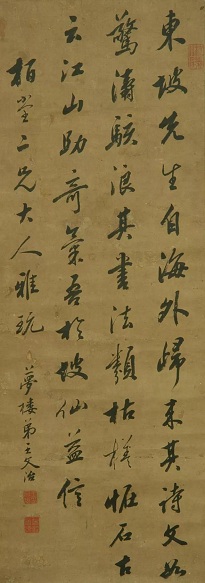 東坡先生自海外歸来其詩文如
驚濤駭浪其書法類枯槎恠石古
云江山助奇氣吾於坡仙益信
栢堂二兄大人雅玩
夢樓弟王文治